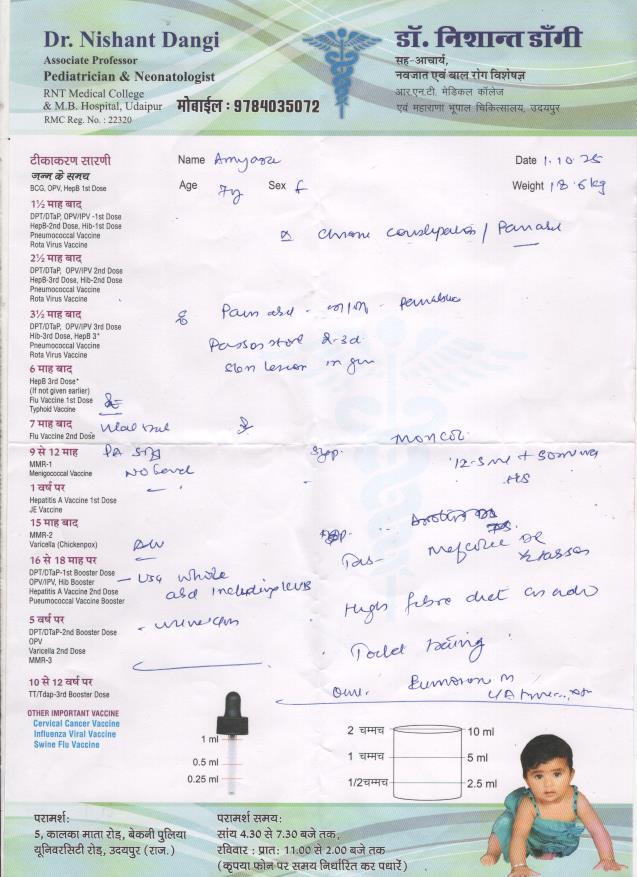 Dr. Nishant Dangi
Associate Professor
Pediatrician & Neonatologist
RNT Medical College
& M.B. Hospital, Udaipur
RMC Reg. No. : 22320
मोबाईल : 9784035072
डॉ. निशान्त डाँगी
सह-आचार्य,
नवजात एवं बाल रोग विशेषज्ञ
आर.एन.टी. मेडिकल कॉलेज
एवं महाराणा भूपाल चिकित्सालय, उदयपुर
Name Amyara
Date 1.10.25
Age 7y Sex f
Weight 18.6kg
टीकाकरण सारणी
जन्म के समय
BCG, OPV, HepB 1st Dose
1½ माह बाद
DPT/DTaP, OPV/IPV -1st Dose
HepB-2nd Dose, Hib-1st Dose
Pneumococcal Vaccine
Rota Virus Vaccine
2½ माह बाद
DPT/DTaP, OPV/IPV 2nd Dose
HepB-3rd Dose, Hib-2nd Dose
Pneumococcal Vaccine
Rota Virus Vaccine
3½ माह बाद
DPT/DTaP, OPV/IPV 3rd Dose
Hib-3rd Dose, HepB 3*
Pneumococcal Vaccine
Rota Virus Vaccine
6 माह बाद
HepB 3rd Dose*
(If not given earlier)
Flu Vaccine 1st Dose
Typhoid Vaccine
7 माह बाद
Flu Vaccine 2nd Dose
9 से 12 माह
MMR-1
Menigococcal Vaccine
1 वर्ष पर
Hepatitis A Vaccine 1st Dose
JE Vaccine
15 माह बाद
MMR-2
Varicella (Chickenpox)
16 से 18 माह पर
DPT/DTaP-1st Booster Dose
OPV/IPV, Hib Booster
Hepatitis A Vaccine 2nd Dose
Pueumococcal Vaccine Booster
5 वर्ष पर
DPT/DTaP-2nd Booster Dose
OPV
Varicella 2nd Dose
MMR-3
10 से 12 वर्ष पर
TT/Tdap-3rd Booster Dose
OTHER IMPORTANT VACCINE
Cervical Cancer Vaccine
Influenza Viral Vaccine
Swine Flu Vaccine
chronic constipation / Pain abd
Pain abd
Passes stool 2-3d
PA soft
Adv
USG whole
abd including KUB
High fibre diet
Toilet training
1 ml
0.5 ml
0.25 ml
2 चम्मच 10 ml
1 चम्मच 5 ml
1/2चम्मच 2.5 ml
परामर्श :
5, कालका माता रोड़, बेकनी पुलिया
यूनिवरसिटी रोड़, उदयपुर (राज.)
परामर्श समय:
सांय 4.30 से 7.30 बजे तक,
रविवार : प्रात: 11.00 से 2.00 बजे तक
(कृपया फोन पर समय निर्धारित कर पधारें)